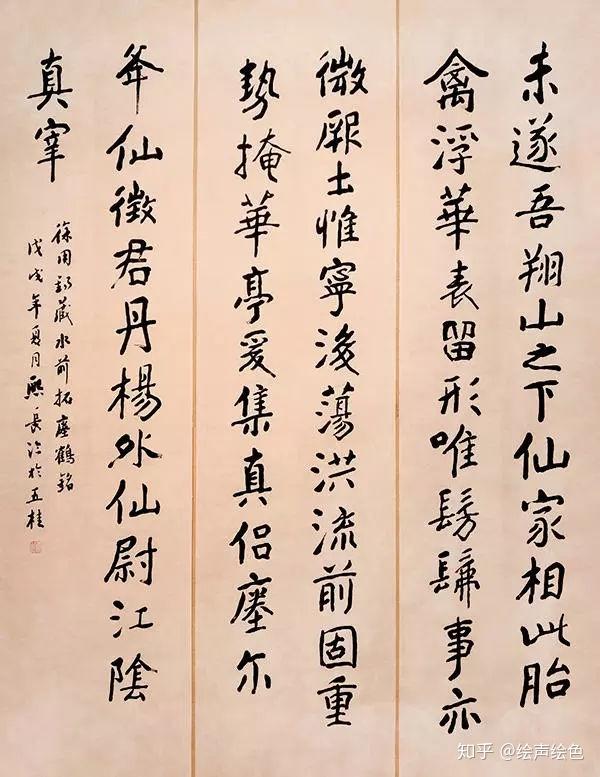 未遂吾翔山之下仙家相此胎
禽浮華表留形唯髣髴事亦
微厥土惟寧後蕩洪流前固重
勢掩華亭爰集真侣瘞尔
岁仙徵君丹楊外仙尉江陰
真宰
藏水前拓瘞鶴銘
戊戌年夏月熙長治於五桂
知乎 @绘声绘色